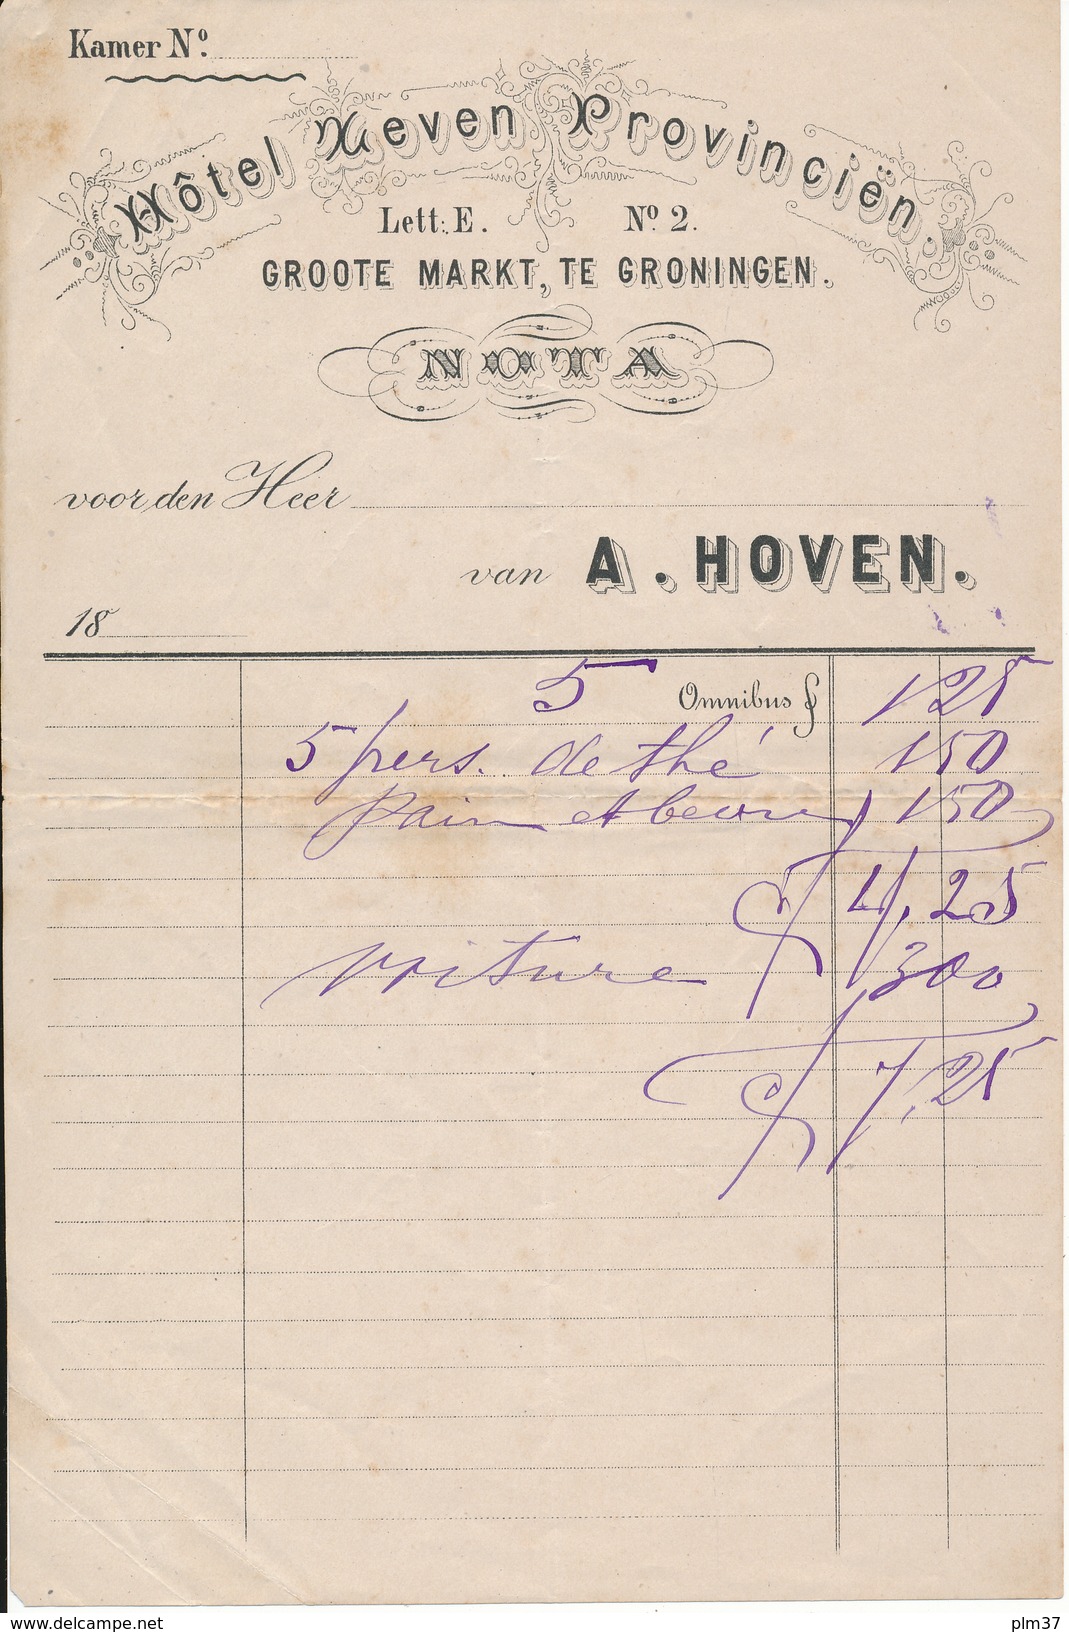 Kamer No.
Hôtel Zeven Provinciën.
Lett: E. No. 2.
GROOTE MARKT, TE GRONINGEN.
NOTA
voor den Heer
van A. HOVEN.
18
5 Omnibus f 125
5 pers. de thé 150
Pain et beurre 150
f 4,25
voiture 300
f 7,25
www.delcampe.net
plm37